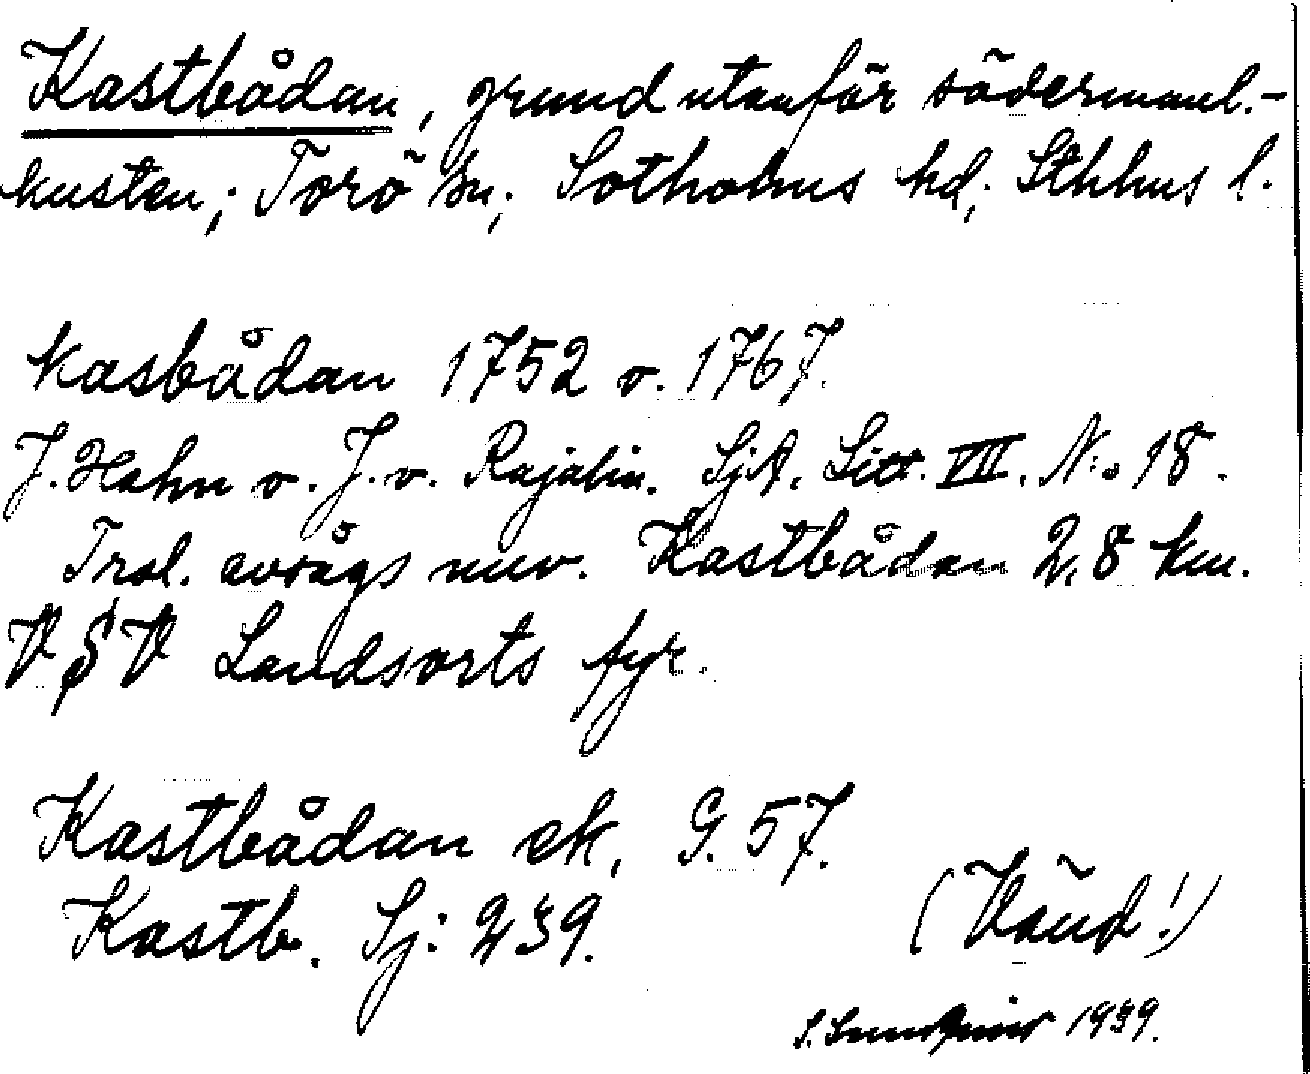 Kastbådan, grund utanför södermanl.-
kusten; Torö sn; Sotholms hd; Sthlms l.
Kasbådan 1752 o. 1767.
J. Hahn o. J. v. Rajalin. SjA. Litt. VIII. N:o 18.
Trol. avsågs nuv. Kastbådan 2,8 km.
V S V Landsorts fyr.
Kastbådan ek, G. 57.
Kastb. Sj: 239.
(Vänd!)
S. 1939.